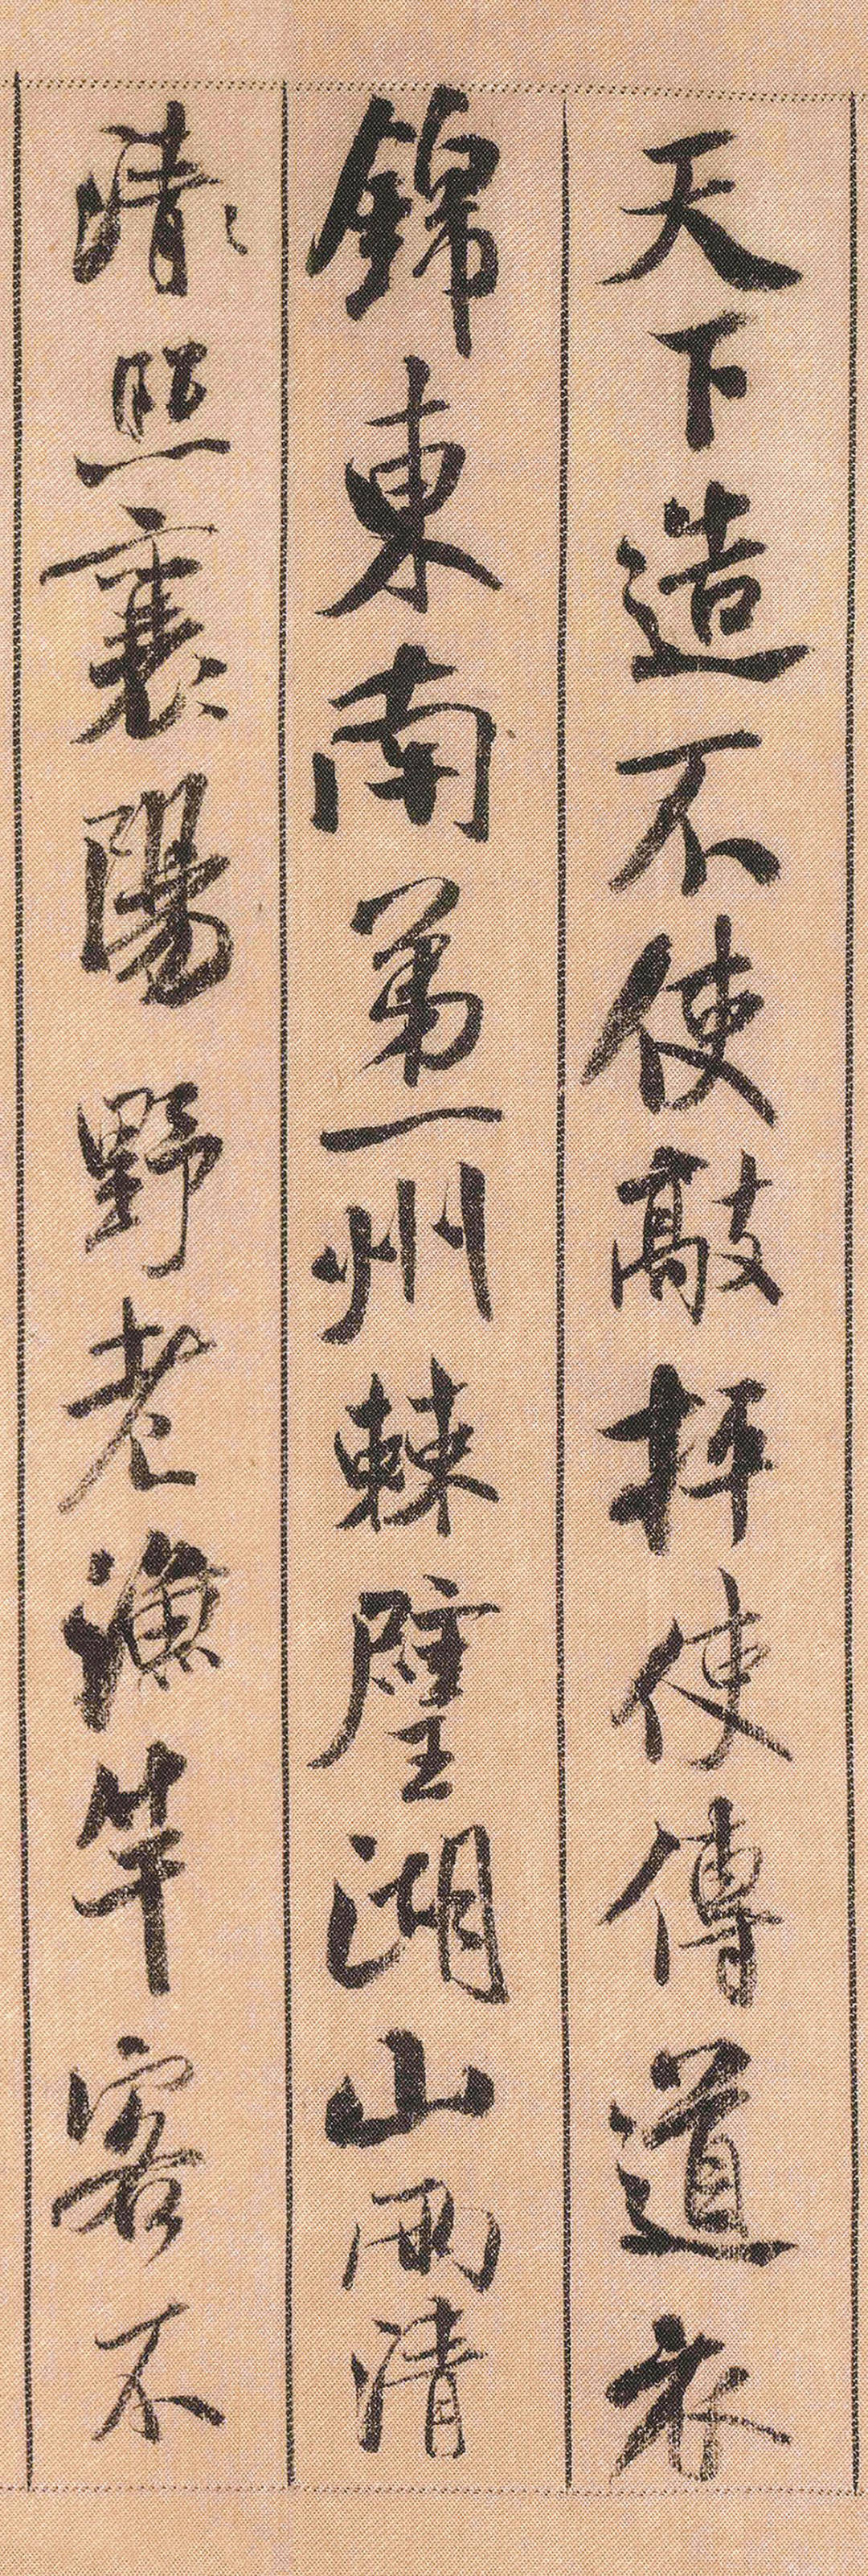 天下造不使敲抨使傳道衣
錦東南第一州棘璧湖山兩清
清〻照襄陽野老漁竿客不